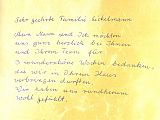 Sehr geehrte Familie Eickelmann
Mein Mann und Ich möchten
uns ganz herzlich bei Ihnen
und Ihrem Team für
3 wunderschöne Wochen bedanken,
die wir in Ihrem Haus
verbringen durften
Wir haben uns rundherum
wohl gefühlt.